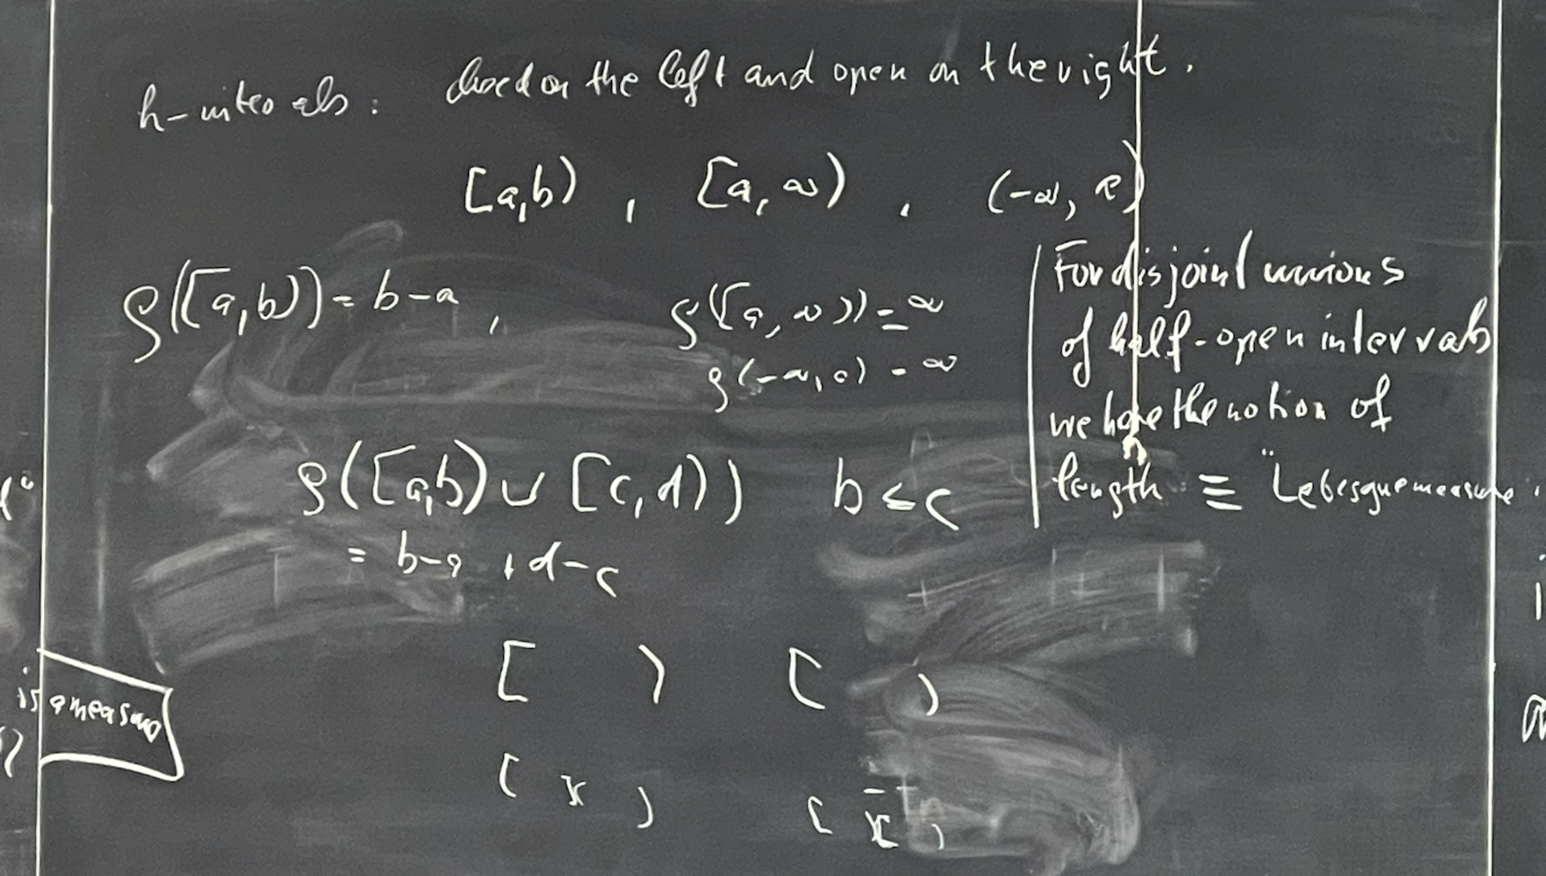 h-intervals: closed on the left and open on the right.
[a,b) , [a,∞) , (-∞, c)
ρ([a,b)) = b-a , ρ([a,∞)) = ∞
ρ(-∞,c) = ∞
ρ([a,b) ∪ [c,d)) b ≤ c
= b-a + d-c
[ ) [ )
[ x ) [ x )
For disjoint unions
of half-open intervals
we have the notion of
length ≡ "Lebesgue measure".
is a measure